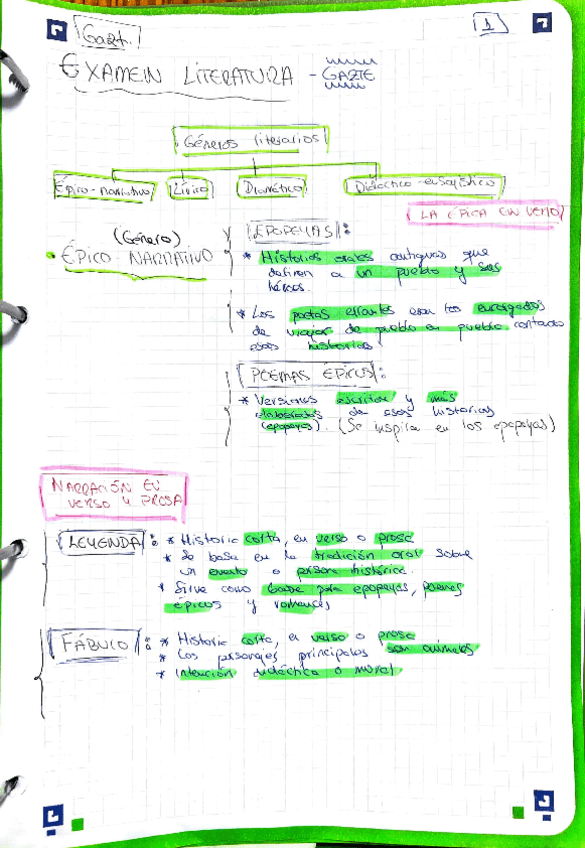 Gazt.
1
EXAMEIN LITERATURA - GAZTE
Géneros literarios
Épico-narrativo
Lírico
Dramático
Didáctico-ensayístico
LA ÉPICA EN VERSO
(Género)
• ÉPICO NARRATIVO
EPOPEYAS:
* Historias orales antiguas que
definen a un pueblo y sus
héroes.
* Los poetas errantes eran los encargados
de viajar de pueblo en pueblo contando
esas historias
POEMAS ÉPICOS:
* Versiones escritas y más
elaboradas de esas historias
(epopeyas). (Se inspira en las epopeyas)
NARRACIÓN EN
VERSO Y PROSA
LEYENDA: * Historia corta, en verso o prosa
* Se basa en la tradición oral sobre
un evento o persona histórica.
* Sirve como base para epopeyas, poemas
épicos y romances
FÁBULA: * Historia corta, en verso o prosa
* Los personajes principales son animales
* Intención didáctica o moral